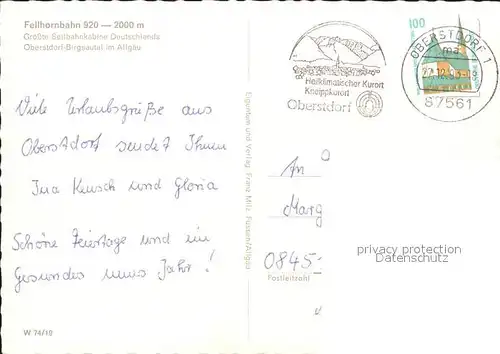 Fellhornbahn 920 — 2000 m
Größte Seilbahnkabine Deutschlands
Oberstdorf-Birgsautal im Allgäu
Viele Urlaubsgrüße aus
Oberstdorf sendet Ihnen
und Gloria
Schöne Feiertage und ein
Gesundes neues Jahr!
W 74/12
Emporium und Verlag Franz Milz, Füssen/Allgäu
Heilklimatischer Kurort
Kneippkurort
Oberstdorf
100
OBERSTDORF 1
ma
87561
An
Marg
0845
Postleitzahl
privacy protection
Datenschutz